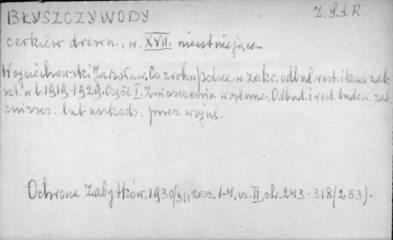 BŁYSZCZYWODY Z.S.S.R.
cerkiew drewn., w. XVII. nieistniejąca
Wojciechowski Jarosław. Co zrob. w Polsce w zakr. odbud. rest. i kons. zab.
szt. w l. 1919-1929. Część I. Zniszczenia wojenne. Odbud. i rest. budow. zab.
zniszcz. lub uszkodz. przez wojnę.
Ochrona Zabytków, 1930/31, zesz. 1-4, cz. II, str. 243-318 (253).